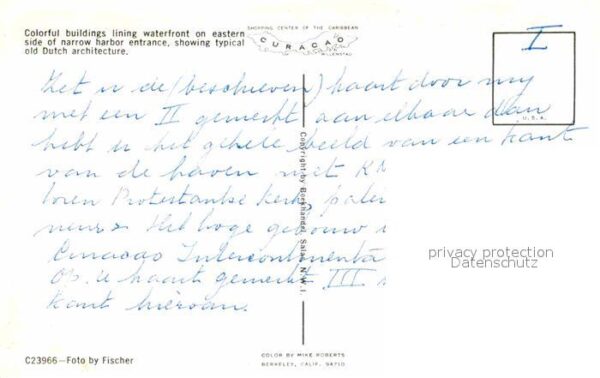 Colorful buildings lining waterfront on eastern
side of narrow harbor entrance, showing typical
old Dutch architecture.
SHOPPING CENTER OF THE CARIBBEAN
CURACAO
WILLEMSTAD
I
U.S.A.
Zet u de (beschreven) kaart door my
met een II gemerkt aan elkaar dan
hebt u het gehele beeld van een kant
van de haven met
toren Protestantse kerk, palei
neurs Het hoge gebouw
Curacao Intercontinenta
Op u kaart gemerkt III
kant hiervan.
Copyright by Boekhandel, Salas N.W.I.
privacy protection
Datenschutz
C23966—Foto by Fischer
COLOR BY MIKE ROBERTS
BERKELEY, CALIF. 94710